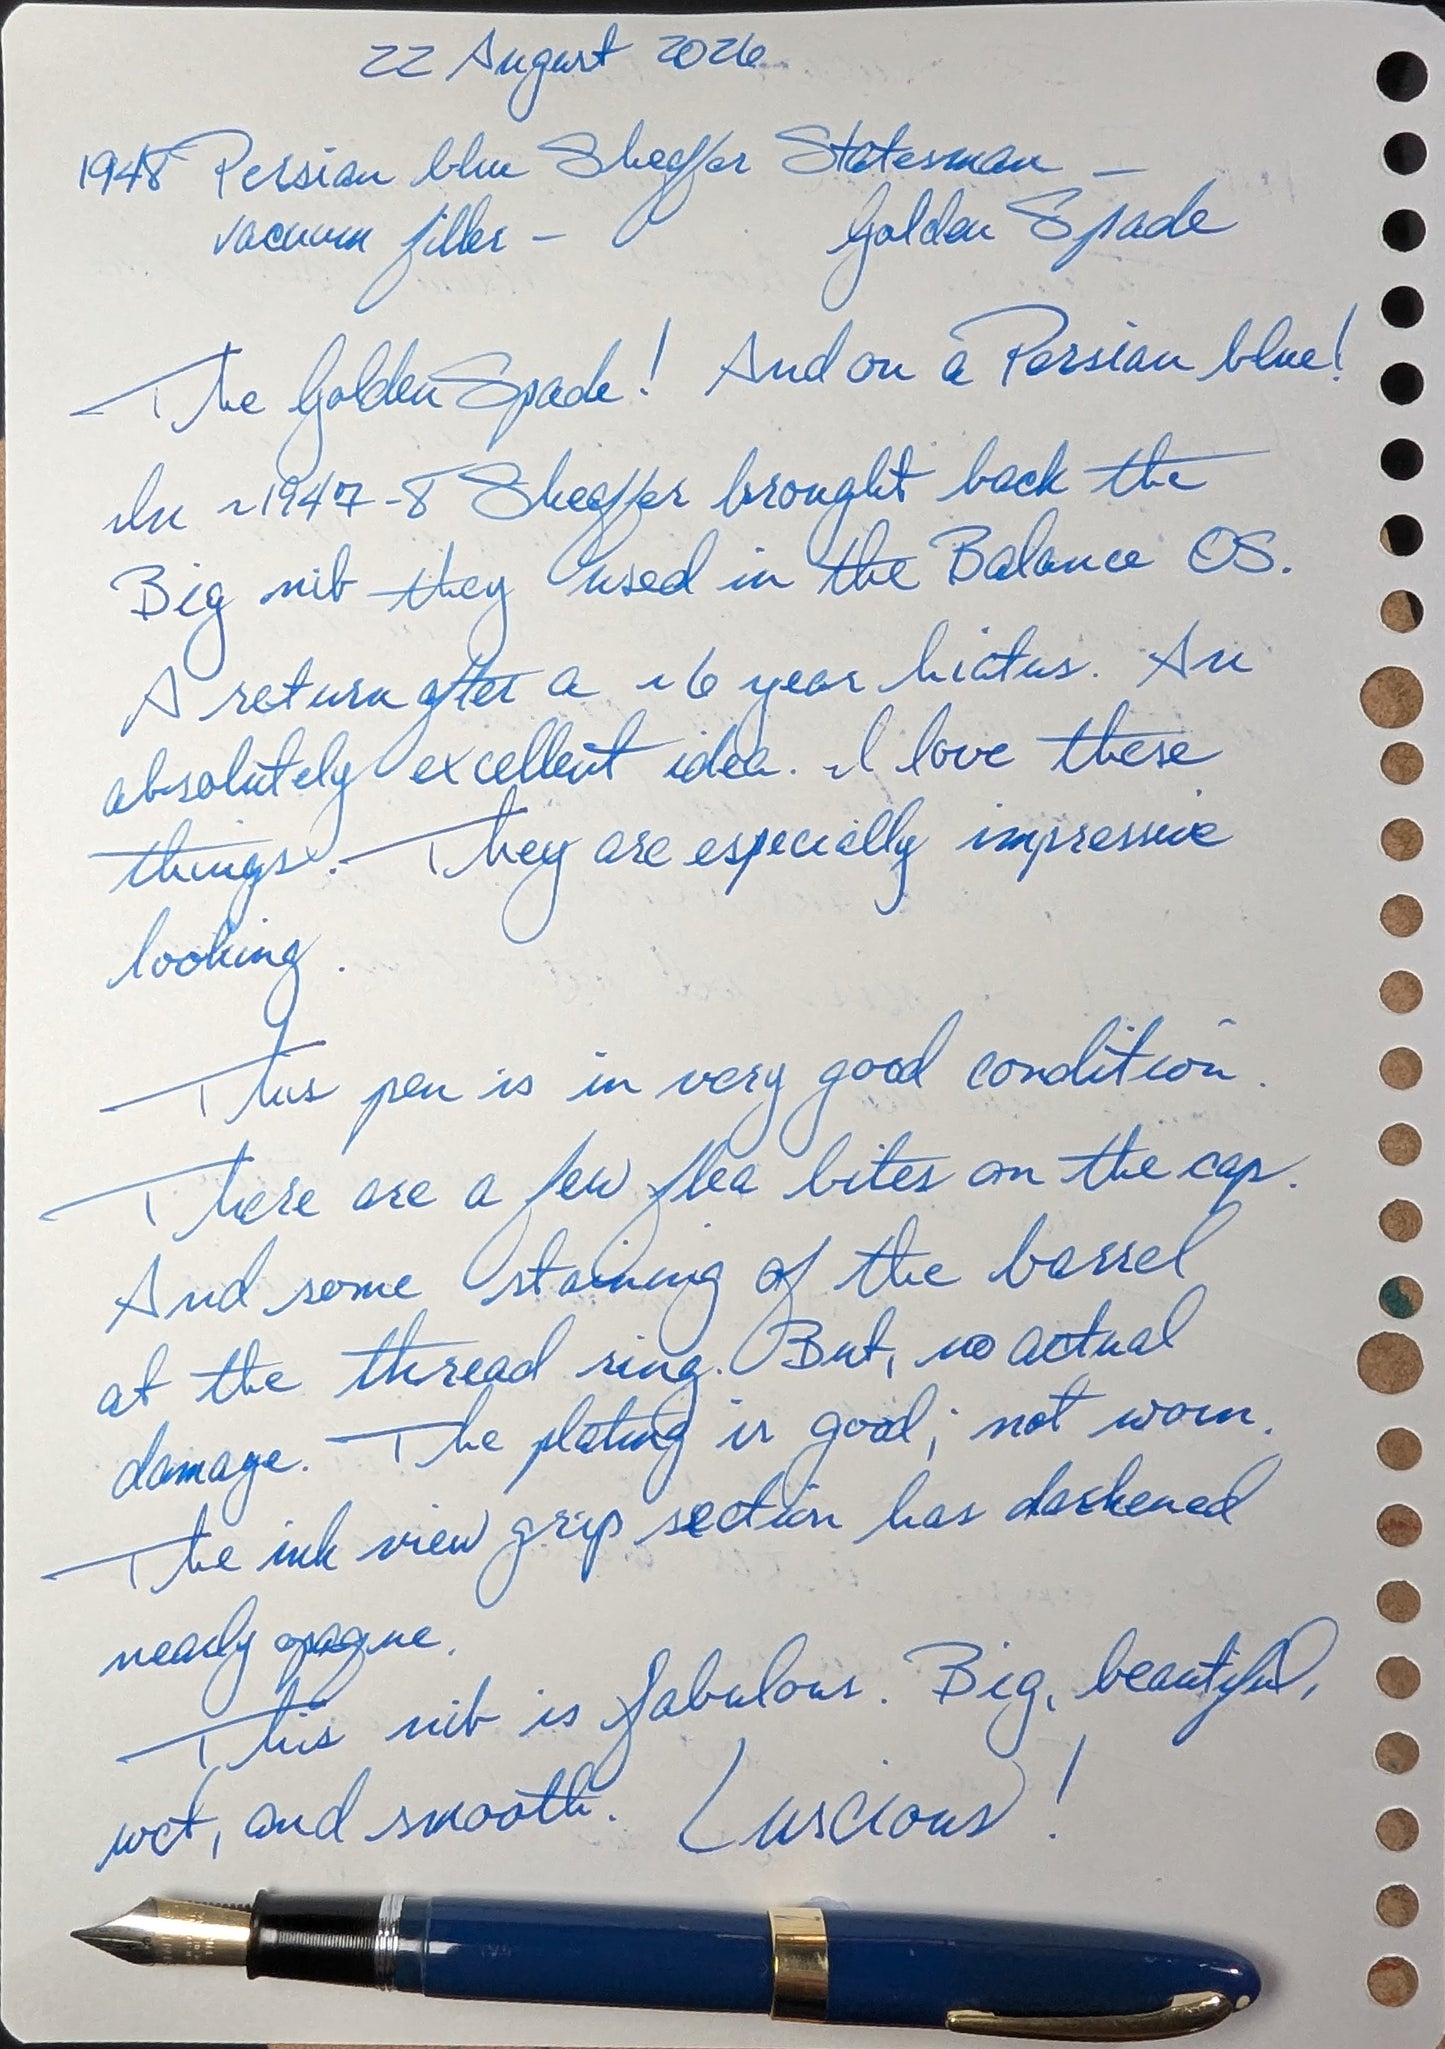 22 August 2026
1948 Persian blue Sheaffer Statesman –
vacuum filler – Golden Spade
The Golden Spade! And on a Persian blue!
In ~1947-8 Sheaffer brought back the
Big nib they used in the Balance OS.
A return after a ~6 year hiatus. An
absolutely excellent idea. I love these
things. They are especially impressive
looking.
This pen is in very good condition.
There are a few flea bites on the cap.
And some staining of the barrel
at the thread ring. But, no actual
damage. The plating is good; not worn.
The ink view grip section has darkened
nearly opaque.
This nib is fabulous. Big, beautiful,
wet, and smooth. Luscious!